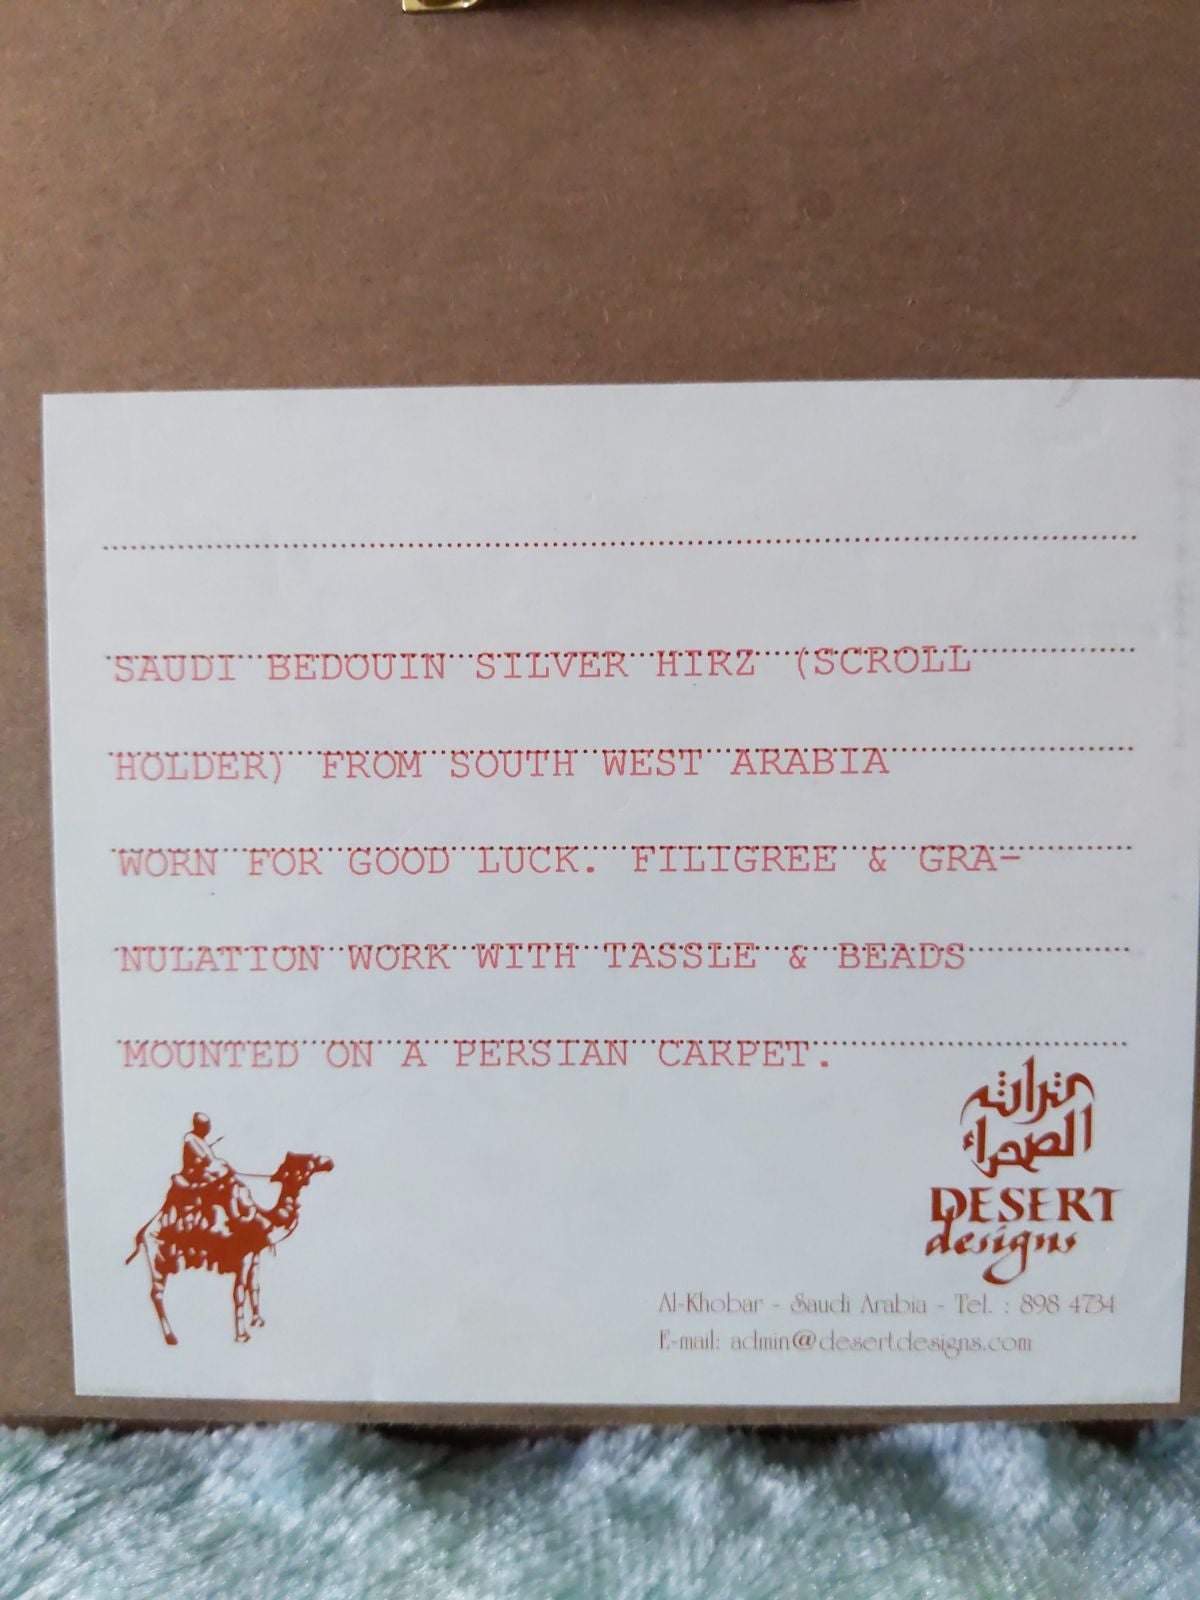 SAUDI BEDOUIN SILVER HIRZ (SCROLL
HOLDER) FROM SOUTH WEST ARABIA
WORN FOR GOOD LUCK. FILIGREE & GRA-
NULATION WORK WITH TASSLE & BEADS
MOUNTED ON A PERSIAN CARPET.
تراث
الصحراء
DESERT
designs
Al-Khobar - Saudi Arabia - Tel. : 898 4734
E-mail: admin@desertdesigns.com